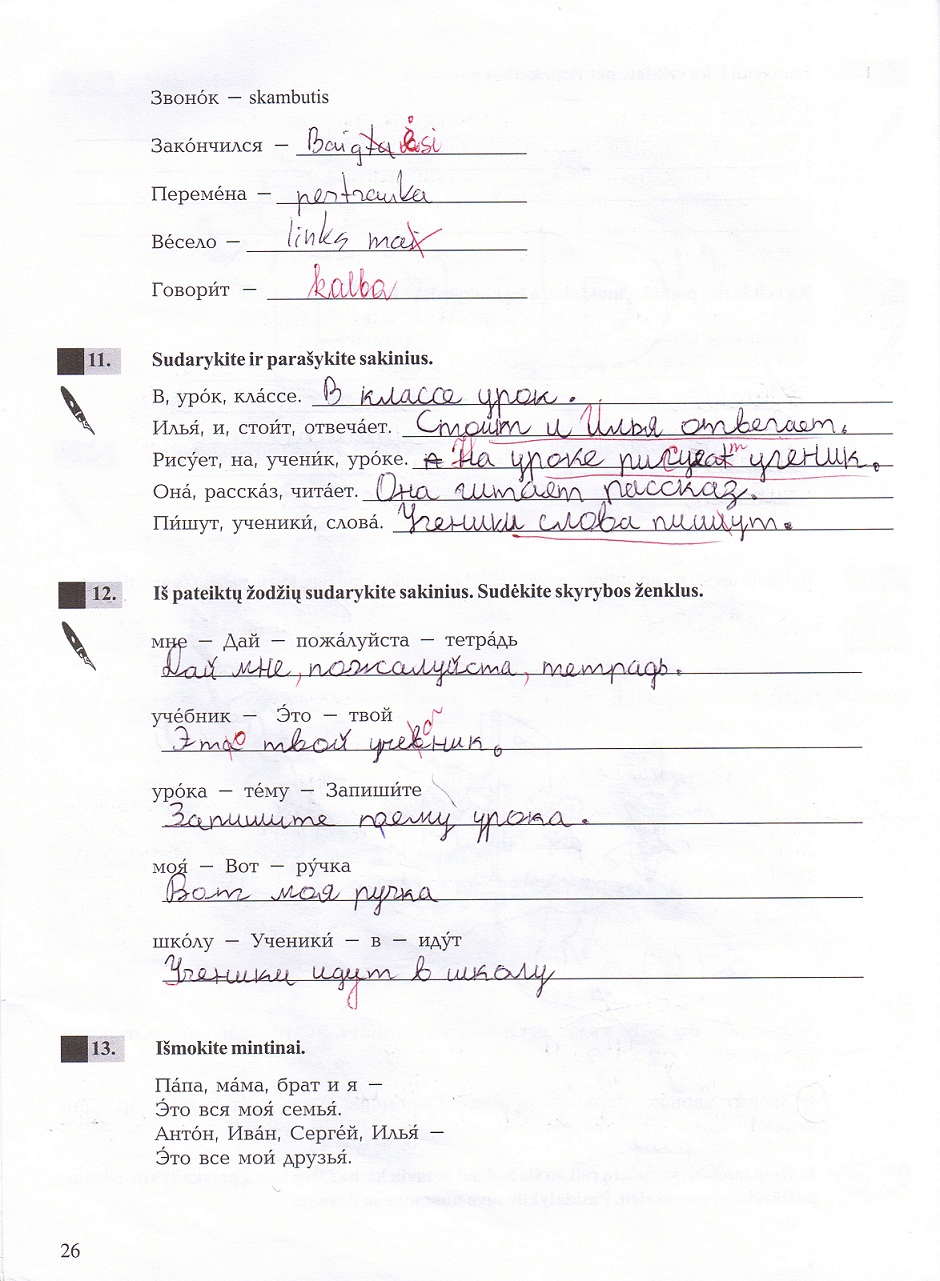 Звоно́к — skambutis
Зако́нчился — Baigėsi
Переме́на — pertrauka
Ве́село — links ma
Говори́т — kalba
11. Sudarykite ir parašykite sakinius.
В, уро́к, кла́ссе. В классе урок.
Илья́, и, стои́т, отвеча́ет. Стоит и Илья отвечает.
Рису́ет, на, учени́к, уро́ке. На уроке рисует ученик.
Она́, расска́з, чита́ет. Она читает рассказ.
Пи́шут, ученики́, слова́. Ученики слова пишут.
12. Iš pateiktų žodžių sudarykite sakinius. Sudėkite skyrybos ženklus.
мне — Дай — пожа́луйста — тетра́дь
Дай мне, пожалуйста, тетрадь.
уче́бник — Э́то — твой
Это твой учебник.
уро́ка — те́му — Запиши́те
Запишите тему урока.
моя́ — Вот — ру́чка
Вот моя ручка
шко́лу — Ученики́ — в — иду́т
Ученики идут в школу
13. Išmokite mintinai.
Па́па, ма́ма, брат и я —
Э́то вся моя́ семья́.
Анто́н, Ива́н, Серге́й, Илья́ —
Э́то все мои́ друзья́.
26